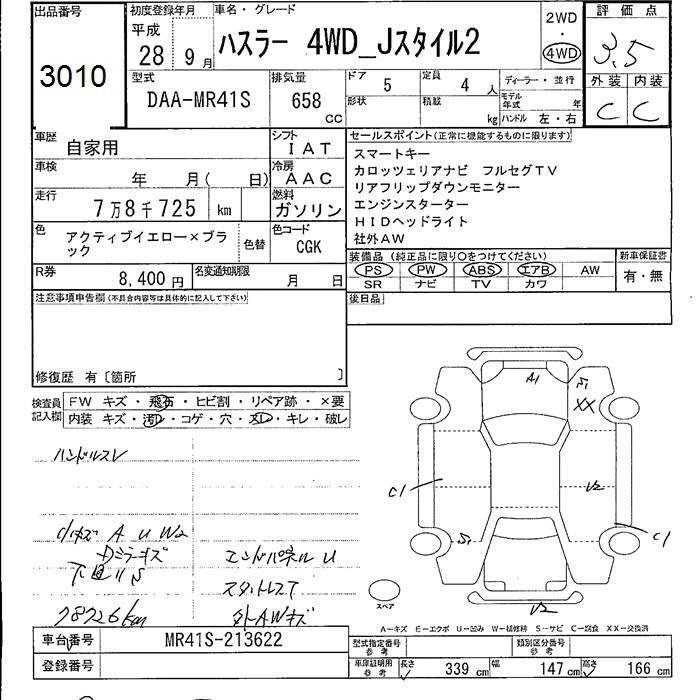 出品番号
3010
初度登録年月
平成
28 年 9 月
車名・グレード
ハスラー 4WD_Jスタイル2
2WD
・
4WD
評価点
3.5
外装 内装
C C
型式
DAA-MR41S
排気量
658 CC
ドア 5
定員 4 人
形状
積載 kg
ディーラー・並行
モデル年式 年
ハンドル 左・右
車歴
自家用
シフト
IAT
車検
年 月( 日)
冷房
AAC
走行
7万8千725 km
燃料
ガソリン
色
アクティブイエロー×ブラック
色替
色コード
CGK
R券
8,400 円
名変通知期限
月 日
セールスポイント(正常に機能するものに限ります)
スマートキー
カロッツェリアナビ フルセグTV
リアフリップダウンモニター
エンジンスターター
HIDヘッドライト
社外AW
装備品 (純正品に限り○をつけてください)
PS PW ABS エアB AW
SR ナビ TV カワ
新車保証書
有・無
後日品
注意事項申告欄(不具合内容等は具体的に記入して下さい)
修復歴 有〔箇所 〕
検査員記入欄
FW キズ・飛石・ヒビ割・リペア跡・×要
内装 キズ・汚レ・コゲ・穴・スレ・キレ・破レ
ハンドルスレ
小キズ A U W2
ドミラーキズ
下廻りS
78726km
エンドパネル U
スタットレスT
外AWキズ
A1
S1
XX
C1
V2
C1
S1
V2
スペア
A-キズ E-エクボ U-凹み W-補修跡 S-サビ C-腐食 XX-交換済
車台番号
MR41S-213622
登録番号
型式指定番号
参考
類別区分番号
参考
車庫証明用
参考
長さ 339 cm
幅 147 cm
高さ 166 cm